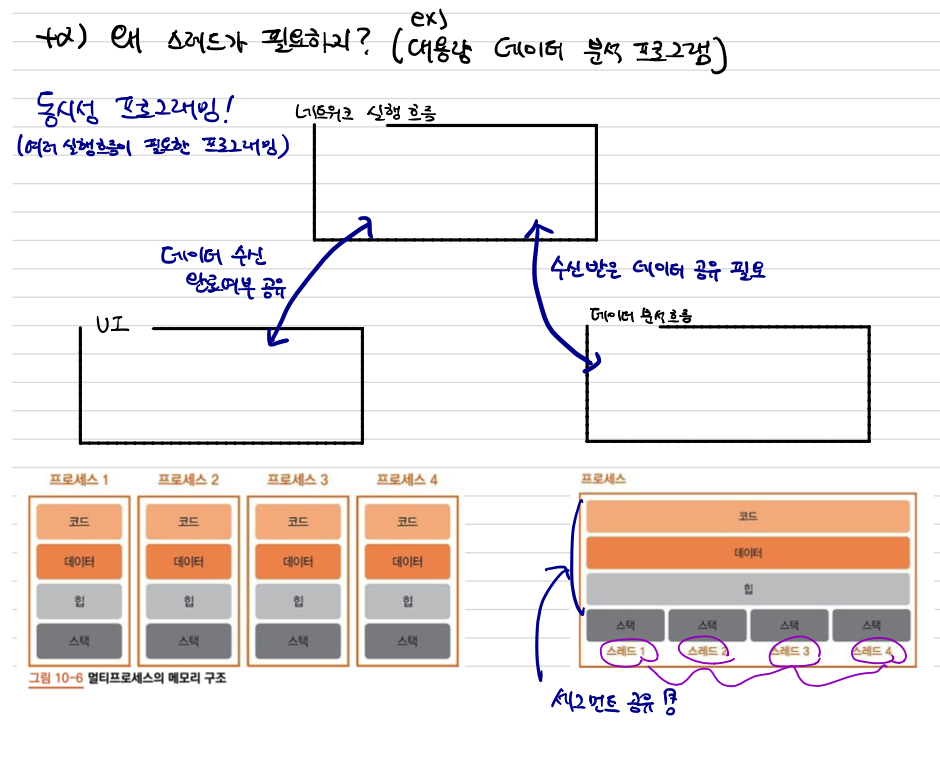 +α) 왜 스레드가 필요하지? (ex) 대용량 데이터 분석 프로그램)
동시성 프로그래밍!
(여러 실행흐름이 필요한 프로그래밍)
네트워크 실행 흐름
데이터 수신
완료여부 공유
수신받은 데이터 공유 필요
UI
데이터 분석흐름
프로세스 1 프로세스 2 프로세스 3 프로세스 4
코드 코드 코드 코드
데이터 데이터 데이터 데이터
힙 힙 힙 힙
스택 스택 스택 스택
그림 10-6 멀티프로세스의 메모리 구조
프로세스
코드
데이터
힙
스택 스택 스택 스택
스레드 1 스레드 2 스레드 3 스레드 4
세그먼트 공유